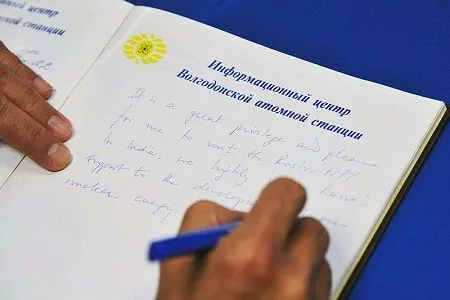 Информационный центр
Волгодонской атомной станции
It is a great privilege and pleasure
for me to visit the Rostov NPP
In India, we highly Russia's
support to the development
nuclear energy